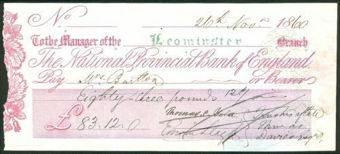 No 26th Novr 1860
To the Manager of the Leominster Branch
The National Provincial Bank of England
Pay Mrs. Britton or Bearer
Eighty three pounds 12/-
£ 83.12.0